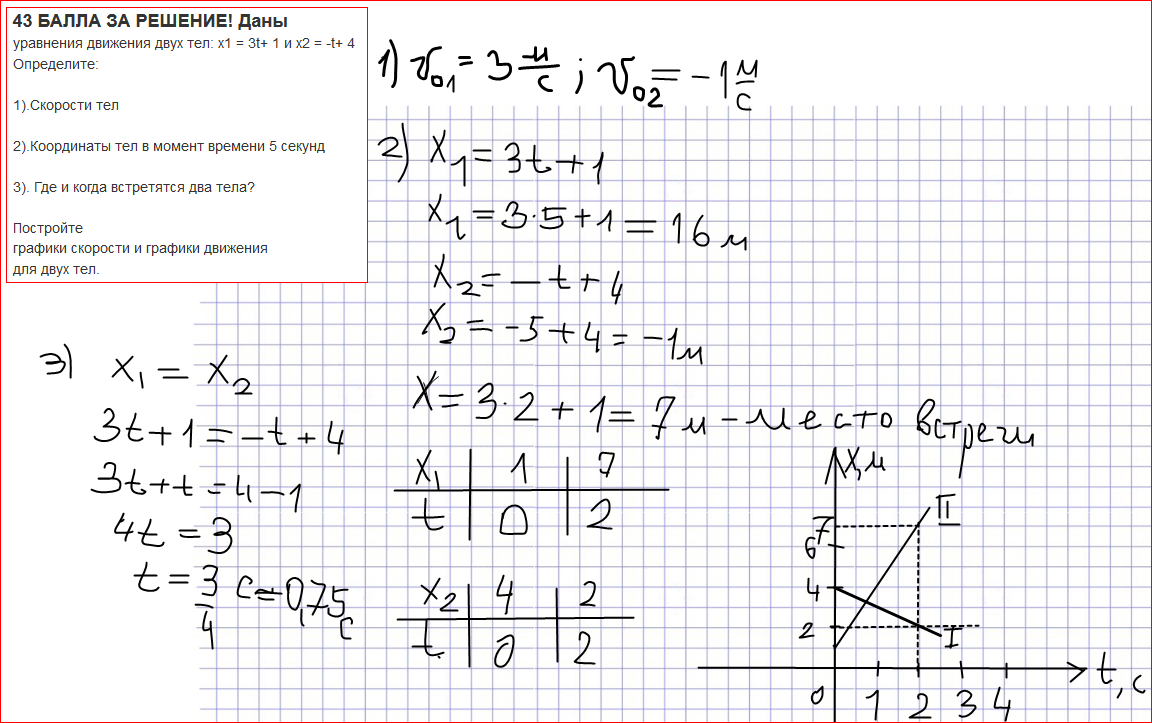 43 БАЛЛА ЗА РЕШЕНИЕ! Даны
уравнения движения двух тел: x1 = 3t+ 1 и x2 = -t+ 4
Определите:
1).Скорости тел
2).Координаты тел в момент времени 5 секунд
3). Где и когда встретятся два тела?
Постройте
графики скорости и графики движения
для двух тел.
1) v₀₁ = 3 м/с ; v₀₂ = -1 м/с
2) x₁ = 3t + 1
x₁ = 3·5 + 1 = 16 м
x₂ = -t + 4
x₂ = -5 + 4 = -1 м
3) x₁ = x₂
3t + 1 = -t + 4
3t + t = 4 - 1
4t = 3
t = 3/4 с = 0,75 с
x = 3·2 + 1 = 7 м - место встречи
x₁ 1 7
t 0 2
x₂ 4 2
t 0 2
x, м
II
7
6
4
2
I
0 1 2 3 4
t, с